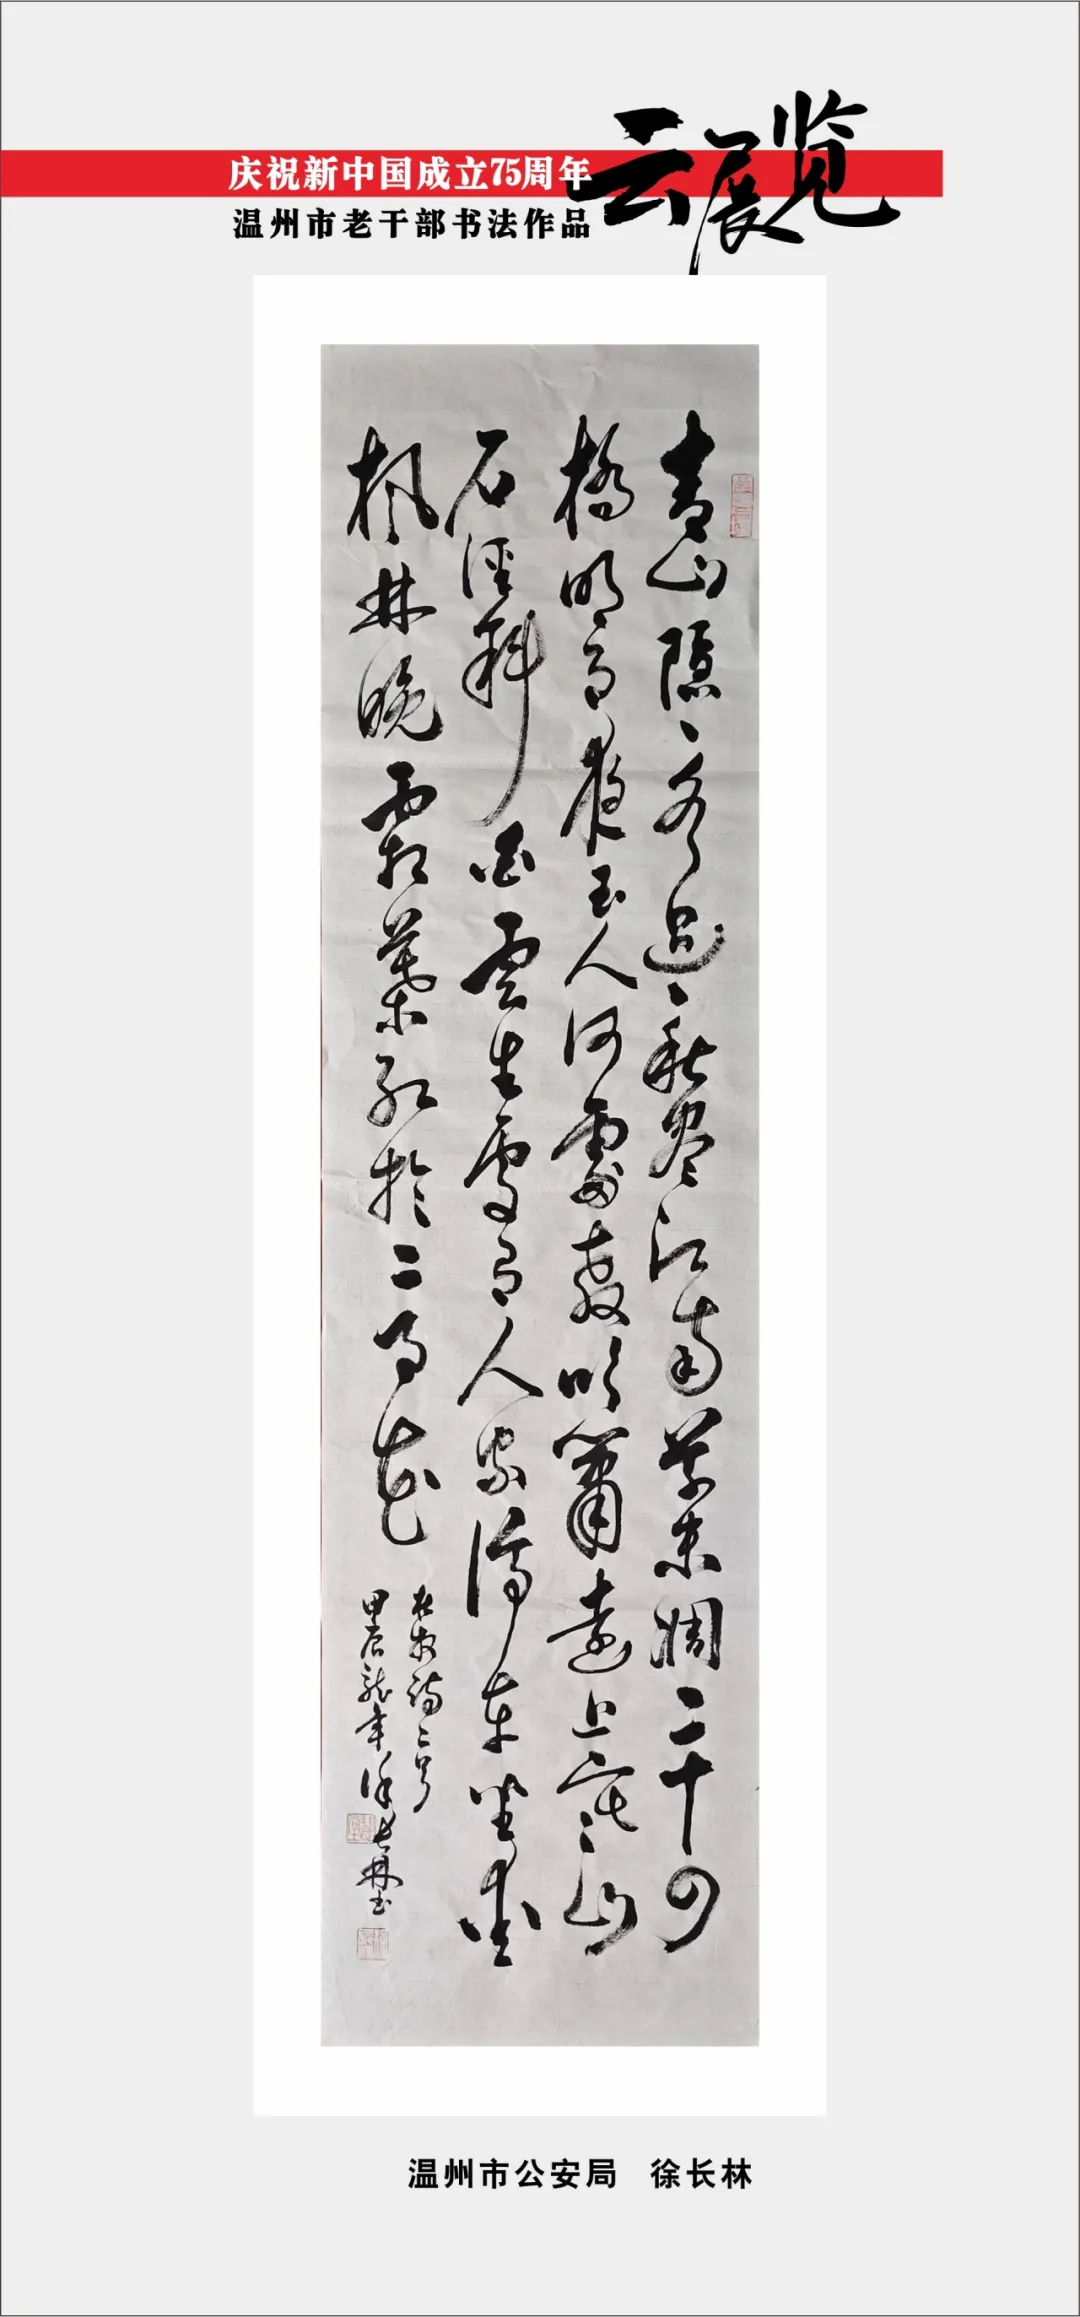 庆祝新中国成立75周年
温州市老干部书法作品
云展览
青山隱〻水迢〻秋尽江南草未凋二十四
橋明月夜玉人何處教吹簫遠上寒山
石徑斜白雲生處有人家停车坐愛
枫林晚霜葉红於二月花
杜牧诗二首
甲辰龙年徐长林书
温州市公安局 徐长林